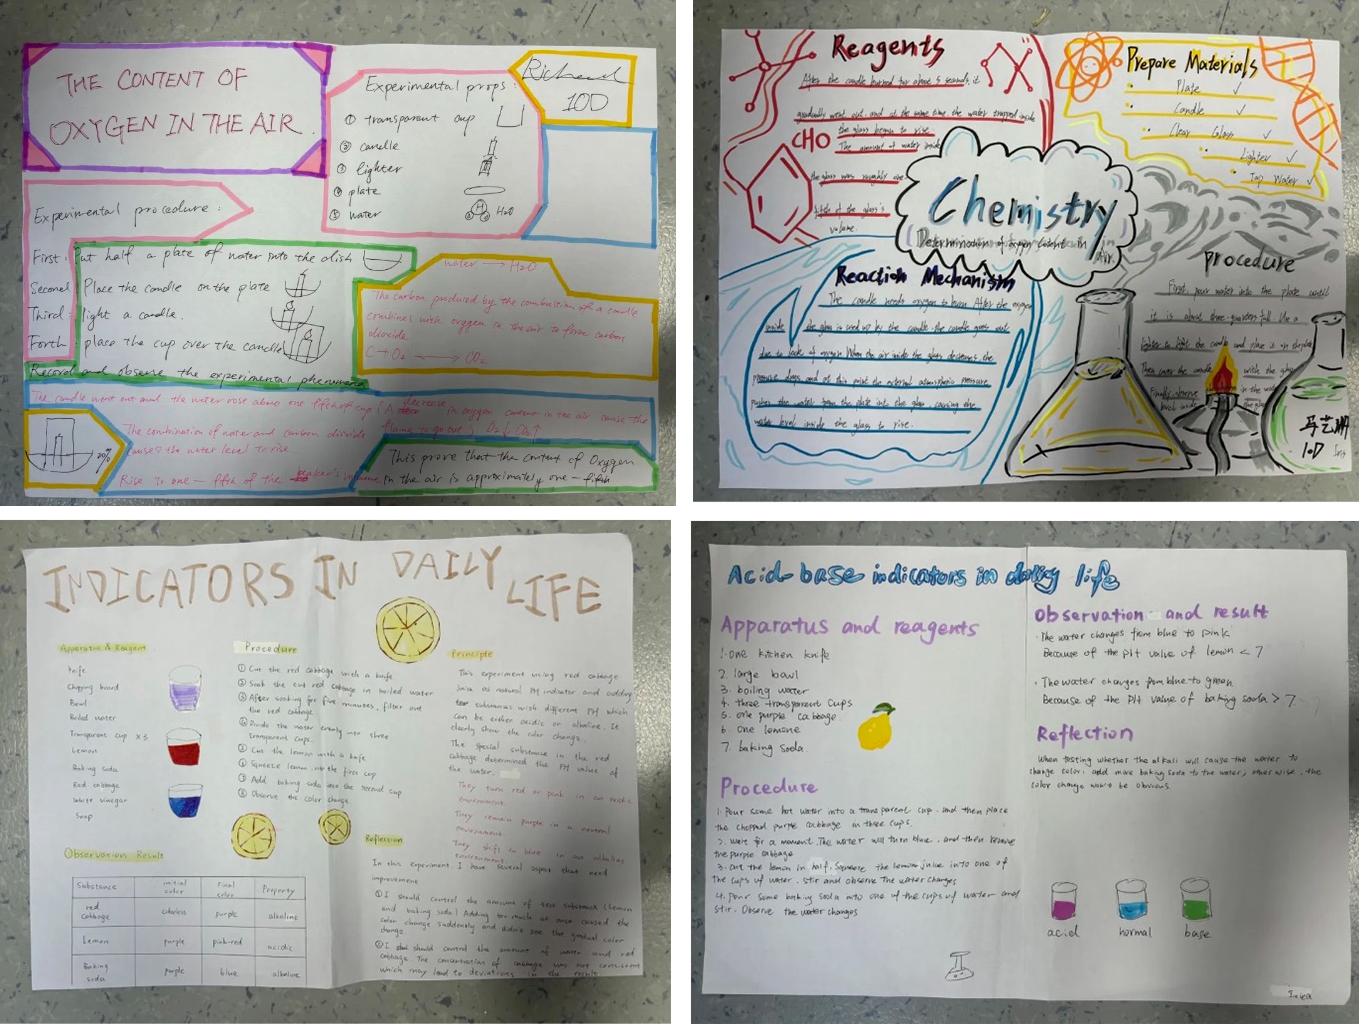 THE CONTENT OF
OXYGEN IN THE AIR.
Experimental props:
① transparent cup
② candle
③ lighter
④ plate
⑤ water
H
H₂O
Richard
10D
Experimental procedure:
First: Put half a plate of water into the dish
Second: Place the candle on the plate
Third: light a candle.
Forth: place the cup over the candle
Record and observe the experimental phenomena
water → H₂O
The carbon produced by the combustion of a candle
combines with oxygen in the air to form carbon
dioxide
C+O₂ CO₂
The candle went out and the water rose about one fifth of cup
A decrease in oxygen content in the air cause the
flame to go out
The combination of water and carbon dioxide
causes the water level to rise
Rise to one-fifth of the beaker's volume
This prove that the content of Oxygen
in the air is approximately one-fifth
Reagents
After the candle burned for about 5 seconds, it
gradually went out, and at the same time, the water trapped inside
the glass began to rise.
The amount of water inside
the glass was roughly one
of the glass's
volume.
CHO
Prepare Materials
Plate ✓
Candle ✓
Clear Glass ✓
Lighter ✓
Tap Water ✓
Chemistry
Determination of oxygen content in
Air
Reaction Mechanism
The candle needs oxygen to burn. After the oxygen
inside the glass is used up by the candle, the candle goes out
due to lack of oxygen. When the air inside the glass decreases, the
pressure drops, and at this point the external atmospheric pressure
pushes the water from the plate into the glass, causing the
water level inside the glass to rise.
Procedure
First, pour water into the plate until
it is about three-quarters full. Use a
lighter to light the candle and place it on the plate
Then cover the candle with the glass
Finally, observe
10D
INDICATORS IN DAILY LIFE
Apparatus & Reagent
knife
Chopping board
Bowl
Boiled water
Transparent cup ×3
Lemon
Baking soda
Red cabbage
White vinegar
Soap
Procedure
① Cut the red cabbage with a knife
② Soak the cut red cabbage in boiled water
③ After soaking for five minutes, filter out
the red cabbage.
④ Divide the water evenly into three
transparent cups.
⑤ Cut the lemon with a knife
⑥ Squeeze lemon into the first cup
⑦ Add baking soda into the second cup
⑧ Observe the color change
Principle
This experiment using red cabbage
juice as natural PH indicator and adding
substances with different PH which
can be either acidic or alkaline. It
clearly show the color change.
The special substance in the red
cabbage determined the PH value of
the water.
They turn red or pink in an acidic
environment.
They remain purple in a neutral
environment.
They shift to blue in an alkaline
environment.
Observation Result
Substance initial color Final color Property
red cabbage colorless purple alkaline
Lemon purple pink-red acidic
Baking soda purple blue alkaline
Reflection
In this experiment, I have several aspect that need
improvement
① I should control the amount of test substance (lemon
and baking soda) Adding too much at once caused the
color change suddenly and didn't see the gradual color
change.
② I should control the amount of water and red
cabbage. The concentration of cabbage was not consistent
which may lead to deviations in the result
Acid-base indicators in daily life
Apparatus and reagents
1. one kitchen knife
2. large bowl
3. boiling water
4. three transparent cups
5. one purple cabbage
6. one lemone
7. baking soda
Procedure
1. Pour some hot water into a transparent cup. and then place
the chopped purple cabbage in three cups.
2. wait for a moment. The water will turn blue. and then remove
the purple cabbage
3. cut the lemon in half. Squeeze the lemon juice into one of
the cups of water. stir and observe The water changes
4. Pour some baking soda into one of the cups of water and
stir. Observe the water changes
Observation and result
· The water changes from blue to pink
Because of the PH value of lemon < 7
· The water changes from blue to green
Because of the PH value of baking soda > 7
Reflection
When testing whether the alkali will cause the water to
change color, add more baking soda to the water, other wise, the
color change won't be obvious.
acid normal base